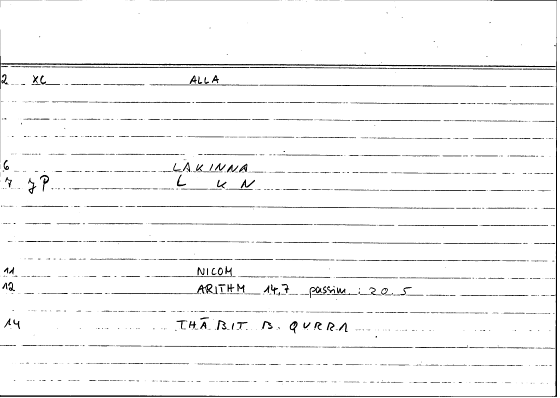 2 XC ALLA
6 LAKINNA
7 JP L K N
11 NICOM
12 ARITHM 14,7 passim : 20.5
14 THĀBIT B. QURRA